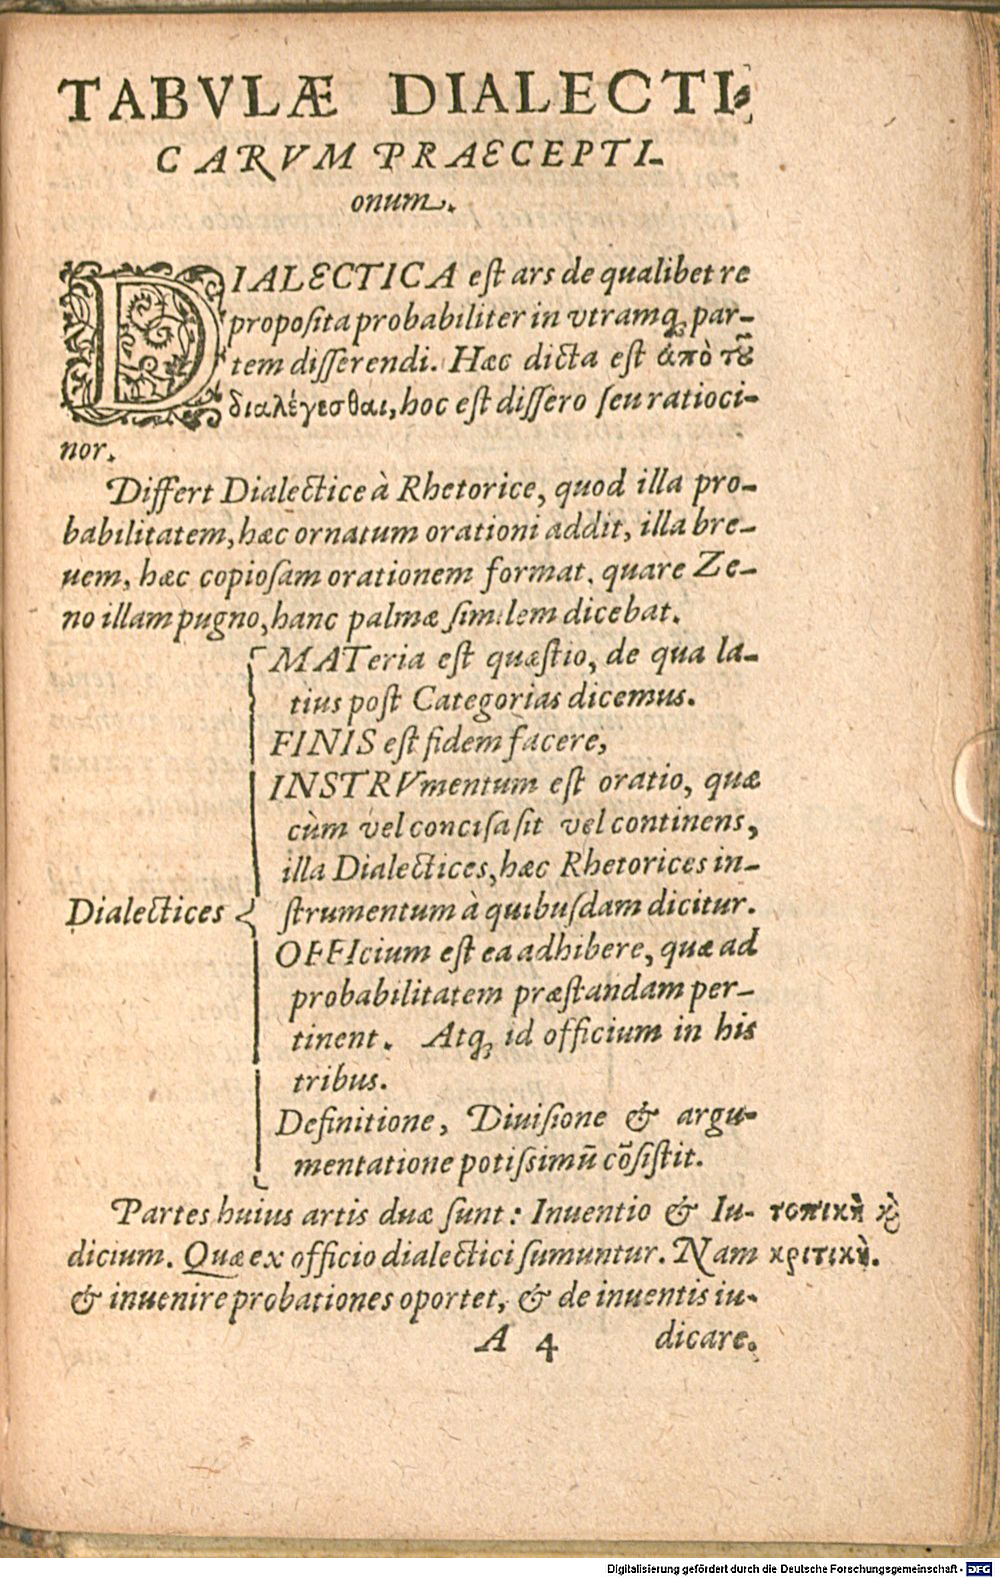 TABVLÆ DIALECTI-
CARVM PRAECEPTI-
onum.
DIALECTICA eſt ars de qualibet re
propoſita probabiliter in vtramq; par-
tem diſſerendi. Hæc dicta eſt ἀπὸ τοῦ
διαλέγεσθαι, hoc eſt diſſero ſeu ratioci-
nor.
Differt Dialectice à Rhetorice, quod illa pro-
babilitatem, hæc ornatum orationi addit, illa bre-
uem, hæc copioſam orationem format. quare Ze-
no illam pugno, hanc palmæ ſimilem dicebat.
MATeria eſt quæſtio, de qua la-
tius poſt Categorias dicemus.
FINIS eſt fidem facere,
INSTRVmentum eſt oratio, quæ
cùm vel conciſa ſit vel continens,
illa Dialectices, hæc Rhetorices in-
Dialectices ſtrumentum à quibuſdam dicitur.
OFFIcium eſt ea adhibere, quæ ad
probabilitatem præſtandam per-
tinent. Atq; id officium in his
tribus.
Definitione, Diuiſione & argu-
mentatione potiſsimū cōſiſtit.
Partes huius artis duæ ſunt: Inuentio & Iu- τοπικὴ κὶ
dicium. Quæ ex officio dialectici ſumuntur. Nam κριτικὴ.
& inuenire probationes oportet, & de inuentis iu-
A 4 dicare.
Digitalisierung gefördert durch die Deutsche Forschungsgemeinschaft - DFG